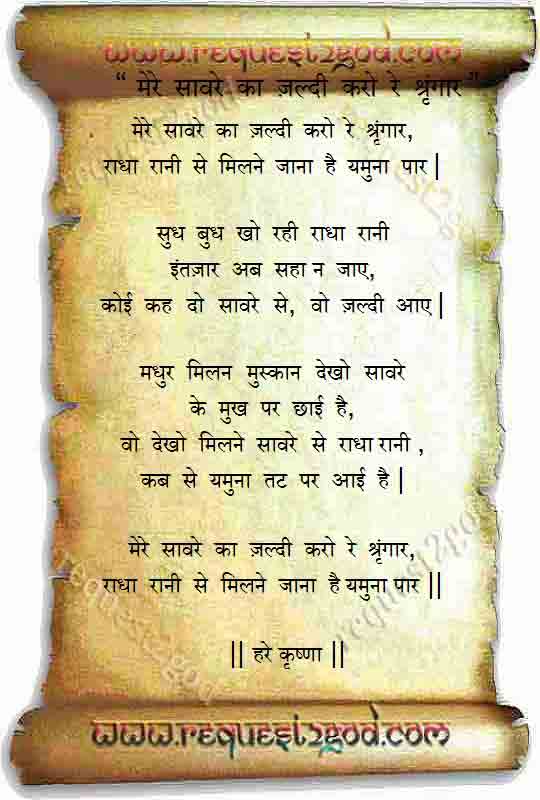 www.request2god.com
“ मेरे सावरे का ज़ल्दी करो रे श्रृंगार ”
मेरे सावरे का ज़ल्दी करो रे श्रृंगार,
राधा रानी से मिलने जाना है यमुना पार |
सुध बुध खो रही राधा रानी
इंतज़ार अब सहा न जाए,
कोई कह दो सावरे से, वो ज़ल्दी आए |
मधुर मिलन मुस्कान देखो सावरे
के मुख पर छाई है,
वो देखो मिलने सावरे से राधा रानी ,
कब से यमुना तट पर आई है |
मेरे सावरे का ज़ल्दी करो रे श्रृंगार,
राधा रानी से मिलने जाना है यमुना पार ||
|| हरे कृष्णा ||
www.request2god.com